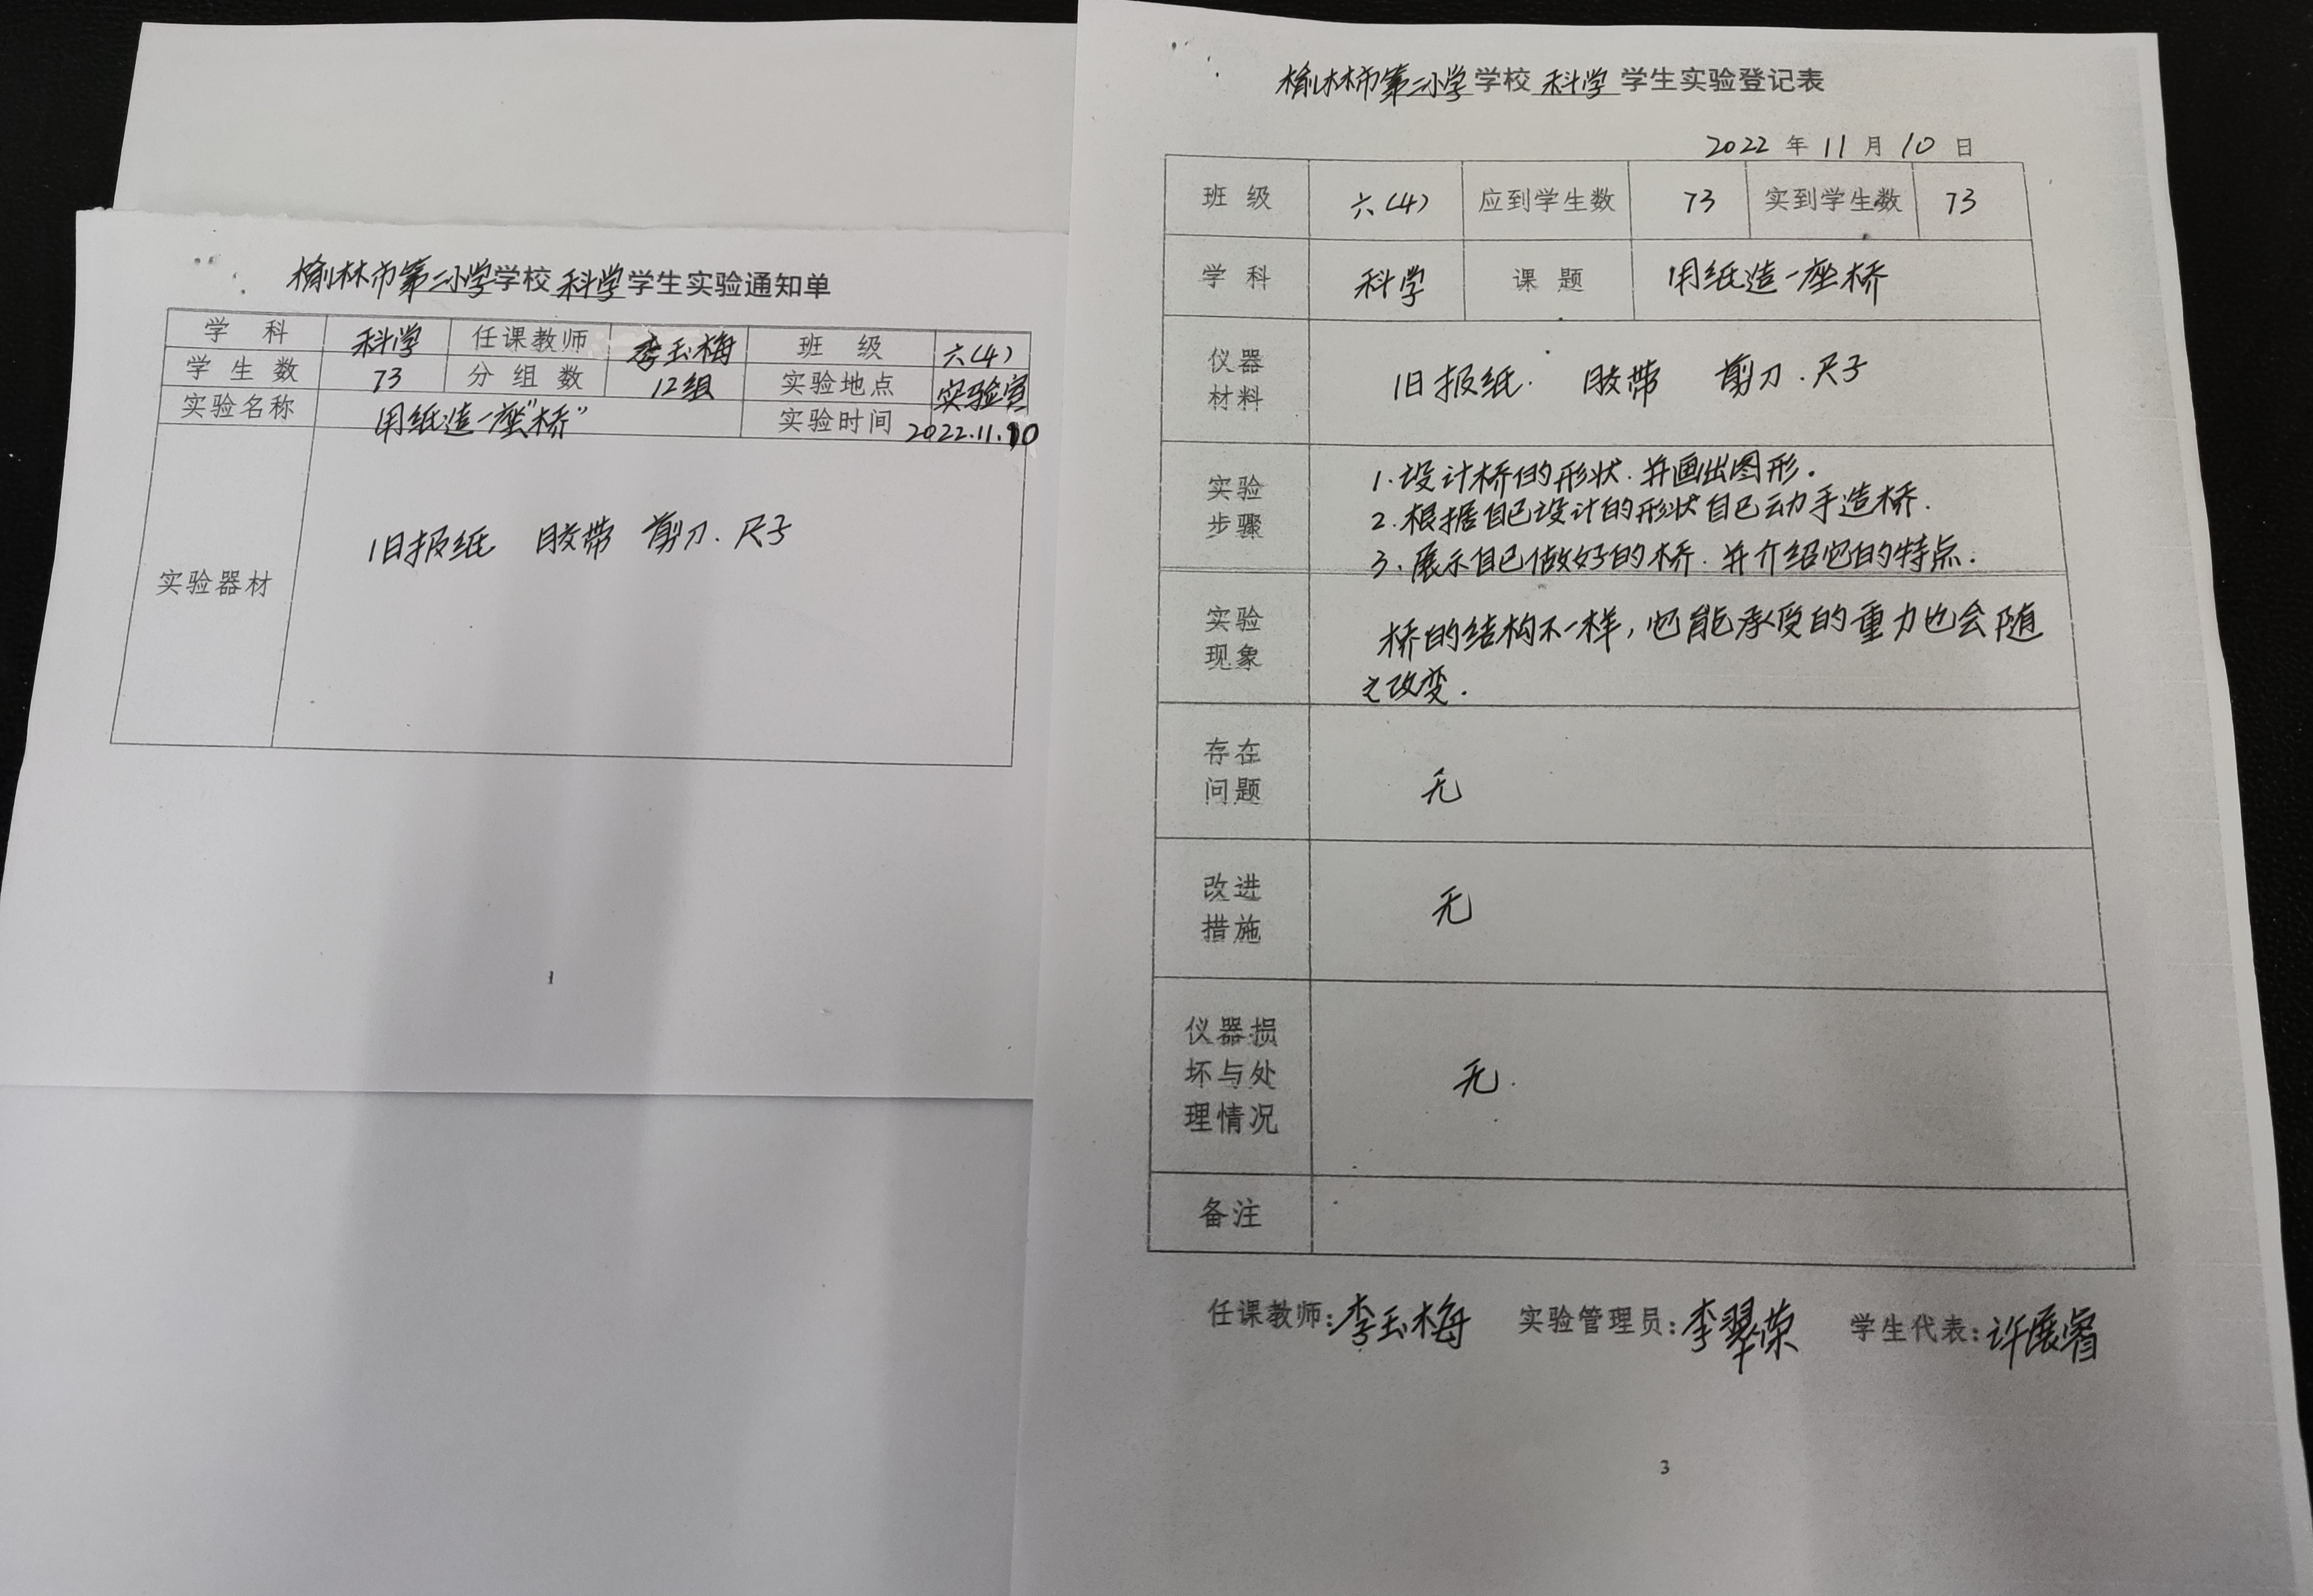 榆林市第二小学学校 科学 学生实验通知单
学 科 科学 任课教师 李玉梅 班 级 六(4)
学 生 数 73 分 组 数 12组 实验地点 实验室
实验名称 用纸造一座"桥" 实验时间 2022.11.10
实验器材 旧报纸 胶带 剪刀. 尺子
1
榆林市第二小学学校 科学 学生实验登记表
2022 年 11 月 10 日
班 级 六(4) 应到学生数 73 实到学生数 73
学 科 科学 课 题 用纸造一座桥
仪器
材料
旧报纸. 胶带 剪刀. 尺子
实验
步骤
1.设计桥的形状.并画出图形.
2.根据自己设计的形状自己动手造桥.
3.展示自己做好的桥.并介绍它的特点.
实验
现象
桥的结构不一样,它能承受的重力也会随
之改变.
存在
问题
无
改进
措施
无
仪器损
坏与处
理情况
无.
备注
任课教师:李玉梅 实验管理员:李翠荣 学生代表:许展睿
3